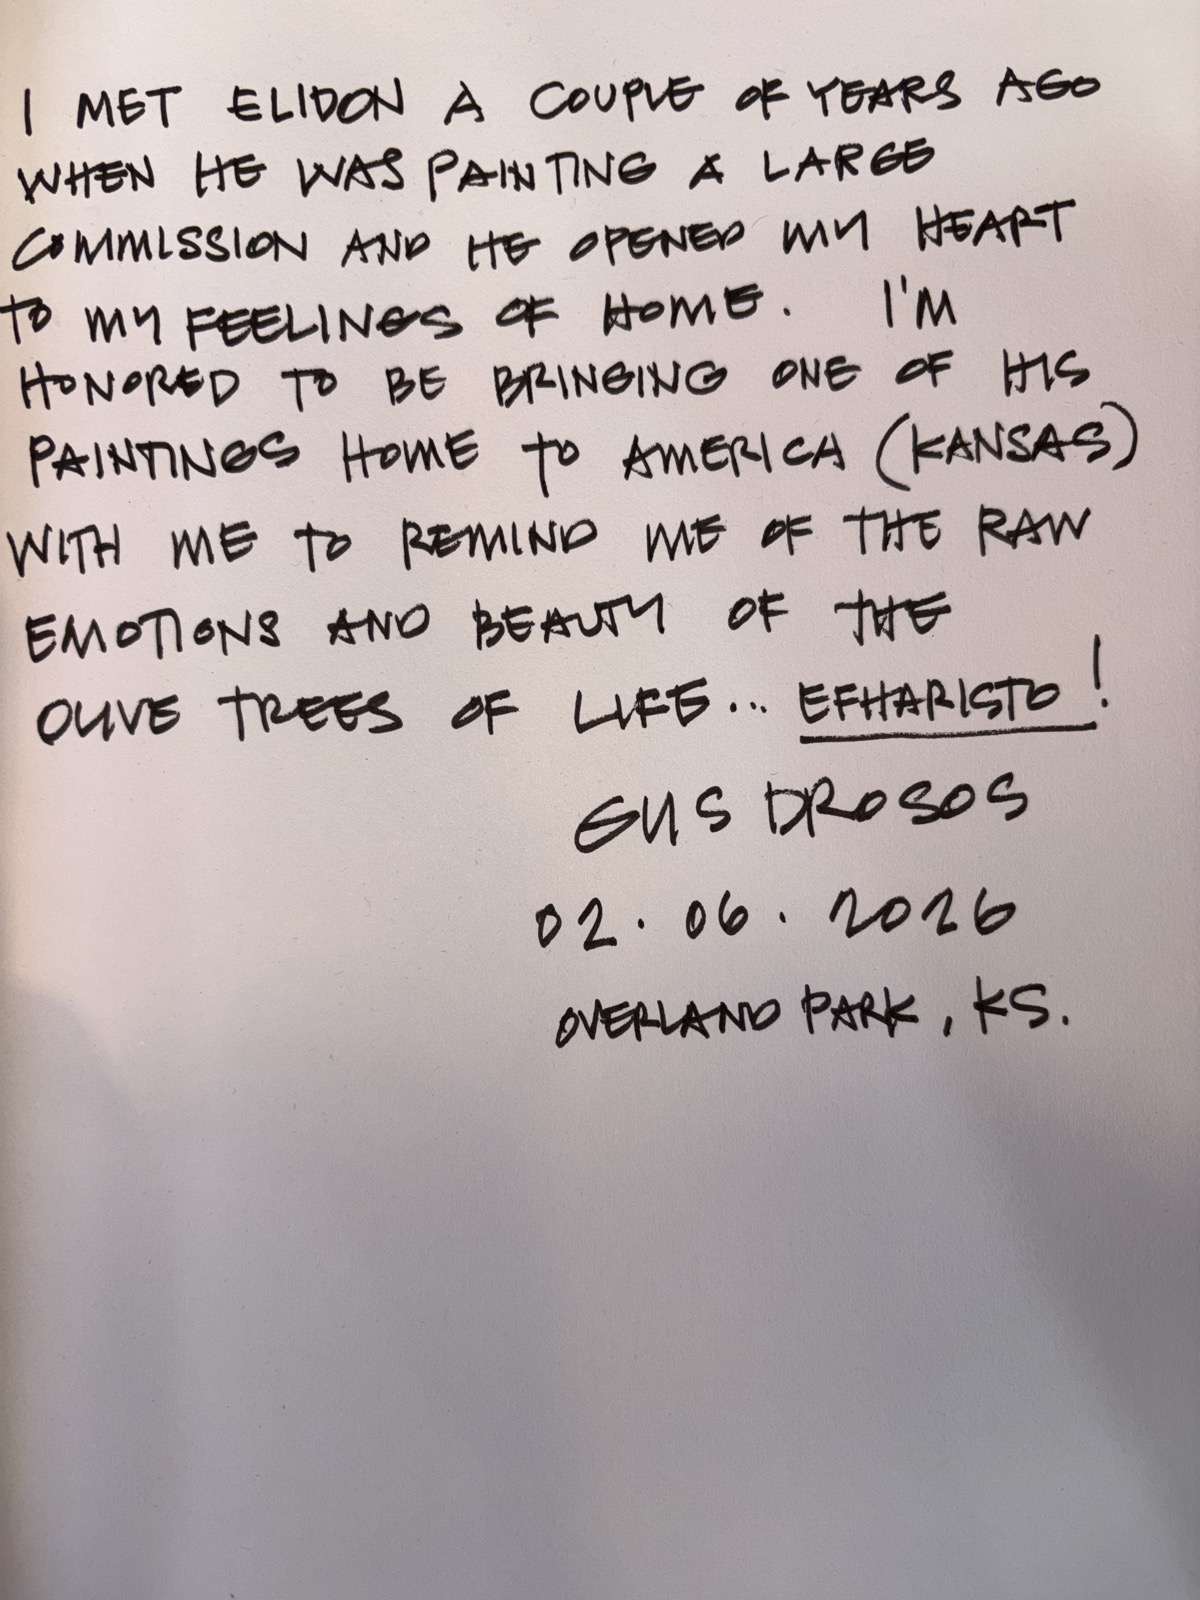 I MET ELIDON A COUPLE OF YEARS AGO
WHEN HE WAS PAINTING A LARGE
COMMISSION AND HE OPENED MY HEART
TO MY FEELINGS OF HOME. I'M
HONORED TO BE BRINGING ONE OF HIS
PAINTINGS HOME TO AMERICA (KANSAS)
WITH ME TO REMIND ME OF THE RAW
EMOTIONS AND BEAUTY OF THE
OLIVE TREES OF LIFE... EFHARISTO!
GUS DROSOS
02.06.2026
OVERLAND PARK, KS.